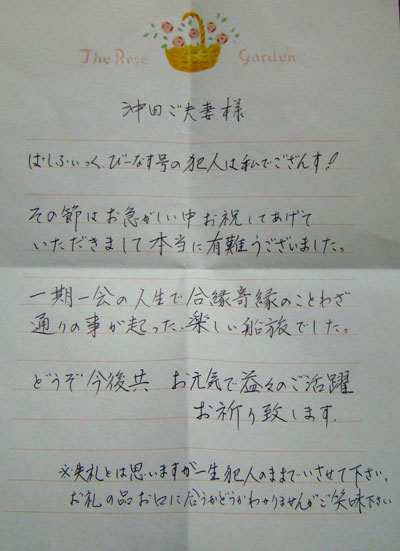 The Rose Garden
沖田ご夫妻様
ぱしふぃっく、びーなす号の犯人は私でござんす!
その節はお急がしい中お祝してあげて
いただきまして本当に有難うございました。
一期一会の人生で合縁奇縁のことわざ
通りの事が起った、楽しい船旅でした。
どうぞ今後共 お元気で益々のご活躍
お祈り致します.
※失礼とは思いますが一生犯人のままでいさせて下さい。
お礼の品お口に合うかどうかわかりませんがご笑味下さい